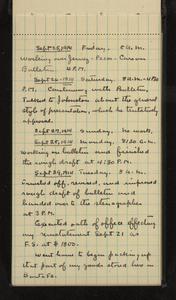 Sept 25, 1914 Friday. 8 A.M.
Working over Jemez - Pecos - Carson
Bulletin. 4 P.M.
Sept 26, 1914 Saturday. 8 A.M. - 4:30
P.M. Continuing with Bulletin.
Talked to Johnston about the general
style of presentation, which he tentatively
approved.
Sept 27, 1914 Sunday. No work.
Sept 28, 1914 Monday. 7:30 A.M.
Working on bulletin and finished
the rough draft at 4:30 P.M.
Sept 29, 1914 Tuesday. 8 A.M.
Finished off, revised, and improved
rough draft of bulletin and
handed over to the stenographer
at 3 P.M.
Executed oath of office effecting
my reinstatement Sept 21 as
F.S. at $1200.
Went home to begin packing up
that part of my goods stored here in
Santa Fe.